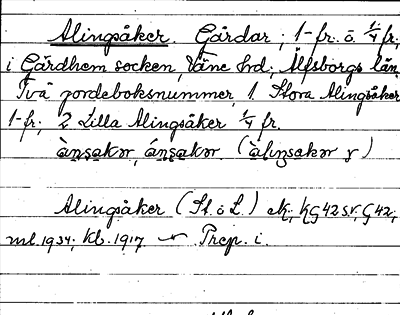 Alingsåker. Gårdar; 1-fr. o. 1/4 fr.
i Gärdhem socken, Väne hd; Älfsborgs län.
Två jordeboksnummer, 1. Stora Alingsåker
1-fr; 2 Lilla Alingsåker 1/4 fr.
Alingsåker (St. o L.) eK; KG 42 sv, G 42,
ml. 1934; Kb. 1917 Prep. i.